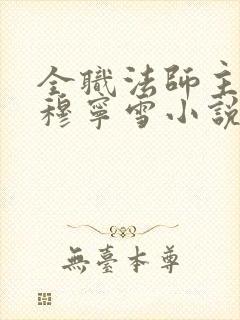 全職法師主
穆寧雪小說
無臺本尊